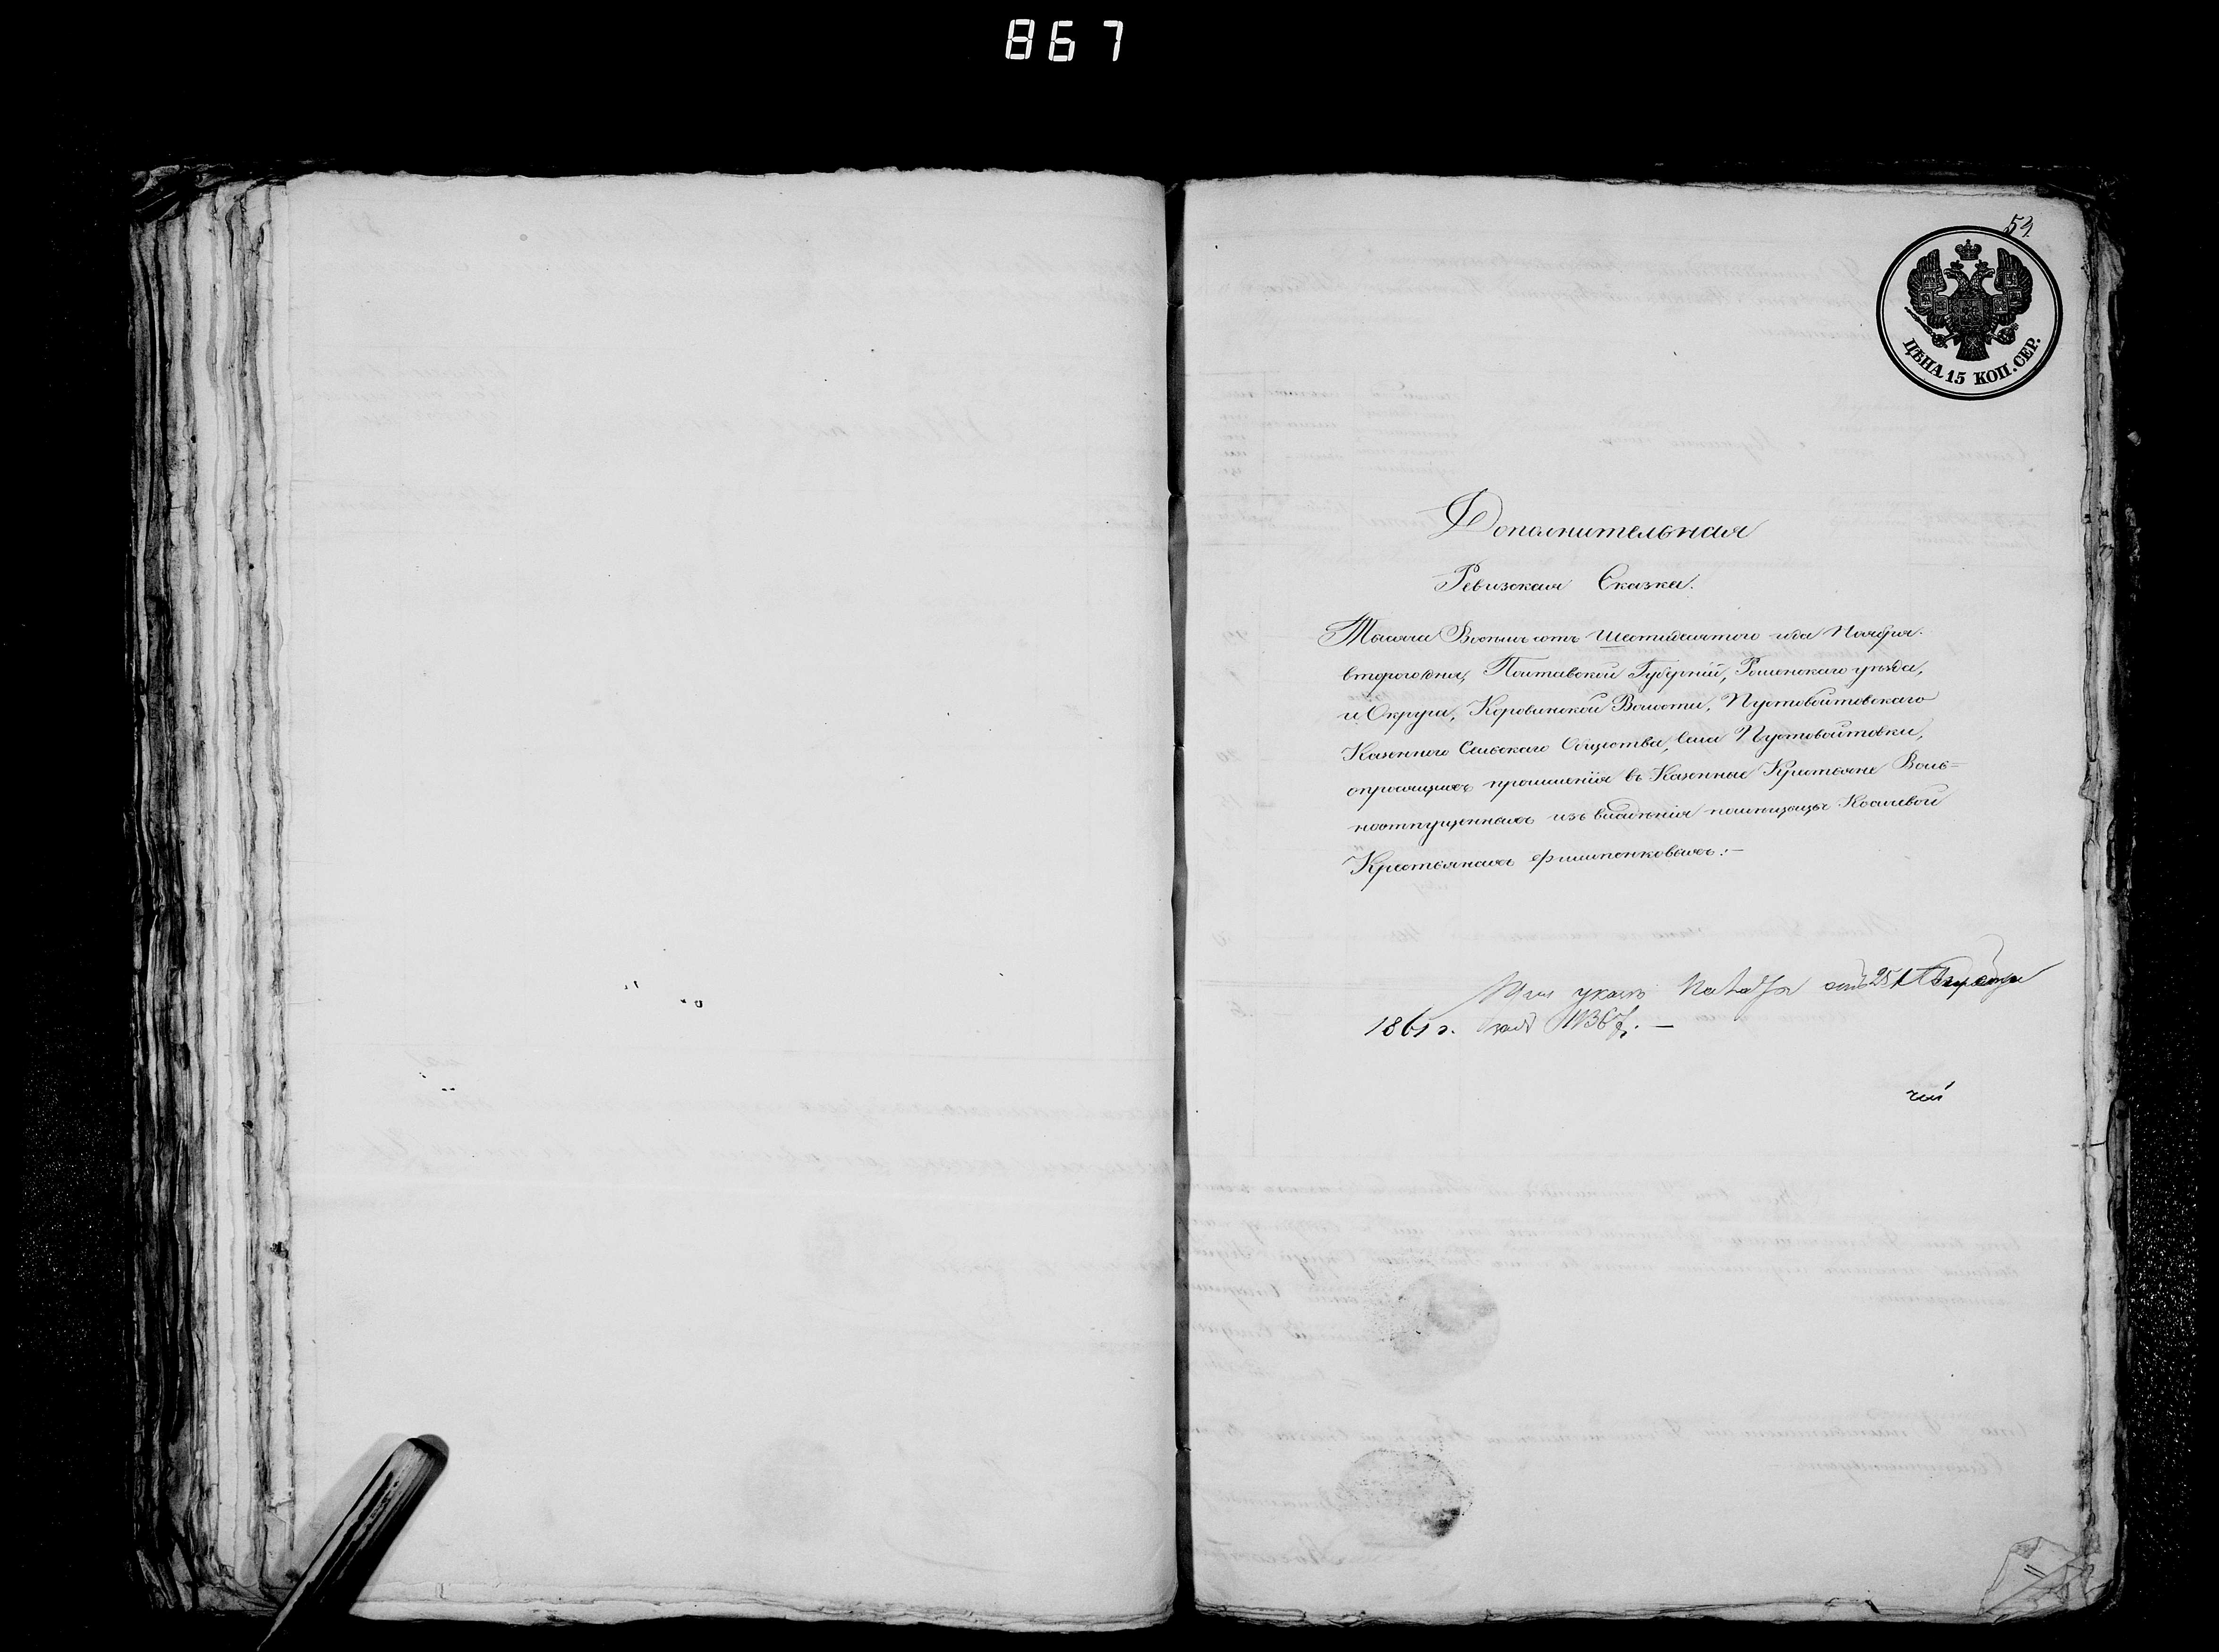 867
59
ЦѢНА 15 КОП. СЕР.
Дополнительная
Ревизская Сказка.
Тысяча Восемь сотъ шестидесятого года Ноября
второго дня, Полтавской Губерніи, Роменскаго уѣзда,
и Округа, Коровинской Волости, Пустовойтовскаго
Казенного Сельскаго Общества, Села Пустовойтовки,
опросящихъ причисленія въ Казенные Крестьяне Воль-
ноотпущенныхъ изъ владѣнія помѣщицы Косаевой
Крестьянахъ Филипенковыхъ:-
указъ отъ 25
1861 г. №367. —